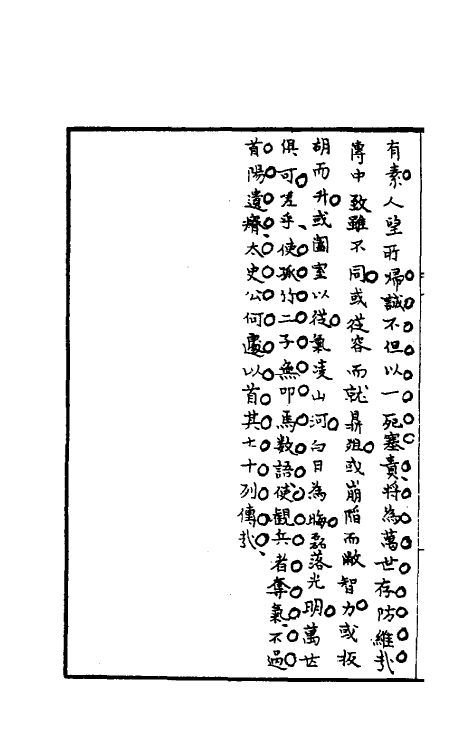 有素人望所歸誠不但以一死塞責將為萬世存防維㢤
傳中致雖不同或從容而就鼎俎或崩陷而敝智力或扳
胡而升或闔室以從氣凌山河白日為晦磊落光明萬世
俱可嗟乎使孤竹二子無叩馬數語使觀兵者奪氣不過
首陽遺瘠太史公何處以首其七十列傳㢤